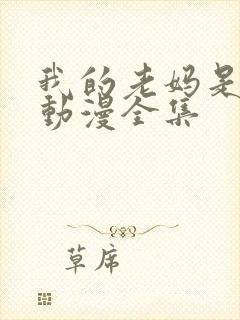 我的老妈是
動漫全集
草席